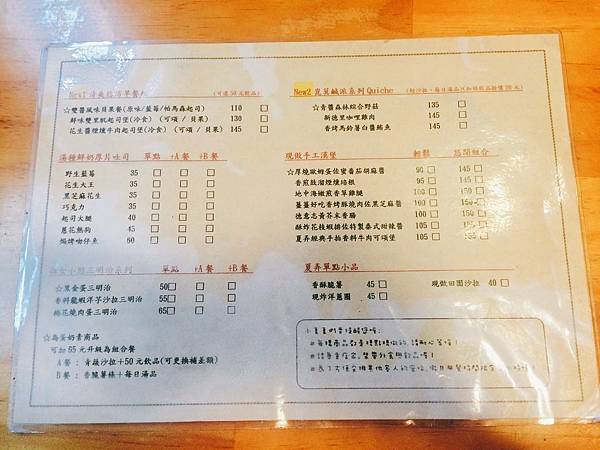 New1 清爽
(可選50元飲品)
☆雙醬風味貝果餐(原味/藍莓/帕馬森起司) 110 □
鮮味雙里肌起司堡(冷食) (可頌 / 貝果) 130 □
花生醬煙燻牛肉起司堡(冷食) (可頌 / 貝果) 145 □
湯種鮮奶厚片吐司 單點 +A餐 +B餐
野生藍莓 35 □ □ □
花生大王 35 □ □ □
黑芝麻花生 35 □ □ □
巧克力 35 □ □ □
起司火腿 40 □ □ □
蔥花熱狗 45 □ □ □
焗烤吻仔魚 60 □ □ □
三明治系列 單點 +A餐 +B餐
☆黑金蛋三明治 50 □ □ □
香料龍蝦洋芋沙拉三明治 55 □ □ □
梅花燒肉蛋三明治 65 □ □ □
☆為蛋奶素商品
可加65元升級為組合餐
A餐 : 青蔬沙拉+50元飲品(可更換補差額)
B餐 : 香脆薯條+每日湯品
New2 崑萁鹹派系列 Quiche
☆青醬森林綜合野菇 135 □
新德里咖哩雞肉 145 □
香烤馬鈴薯白醬鮪魚 145 □
現做手工漢堡 輕鬆 悠閒組合
☆厚燒歐姆蛋佐蜜番茄胡麻醬 90 □ 145 □
香煎鼓溜煙燻培根 95 □ 150 □
地中海嫩煎香草雞腿 100 □ 150 □
薑薑好吃香烤酥燒肉佐黑芝麻醬 100 □ 150 □
德意志黃芥末香腸 100 □ 150 □
酥炸花枝蝦排佐特製泰式甜辣醬 105 □ 155 □
夏弄經典手拍香料牛肉可頌堡 105 □ 155 □
夏弄單點小品
香酥脆薯 45 □ 現做田園沙拉 40 □
現炸洋蔥圈 45 □